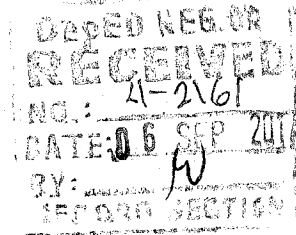 DepED NEG. OR
RECEIVED
NO.: 21-2161
DATE: 06 SEP 201
BY:
RECORD SECTION